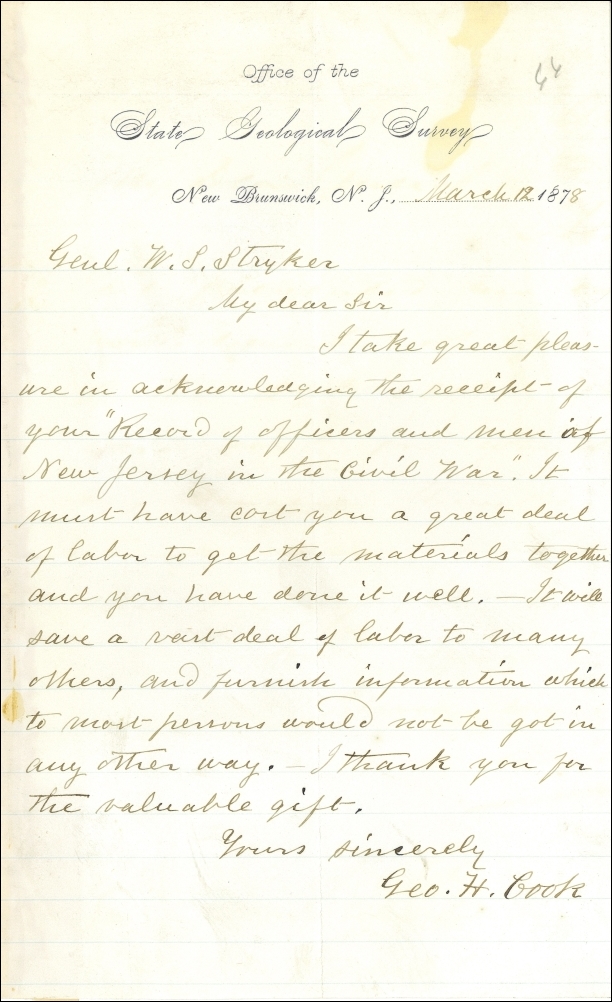 44
Office of the
State Geological Survey
New Brunswick, N. J., March 12 1878
Genl. W. S. Stryker
My dear Sir
I take great pleas-
ure in acknowledging the receipt of
your "Record of officers and men of
New Jersey in the Civil War". It
must have cost you a great deal
of labor to get the materials together
and you have done it well. — It will
save a vast deal of labor to many
others, and furnish information which
to most persons would not be got in
any other way. — I thank you for
the valuable gift.
Yours sincerely
Geo. H. Cook